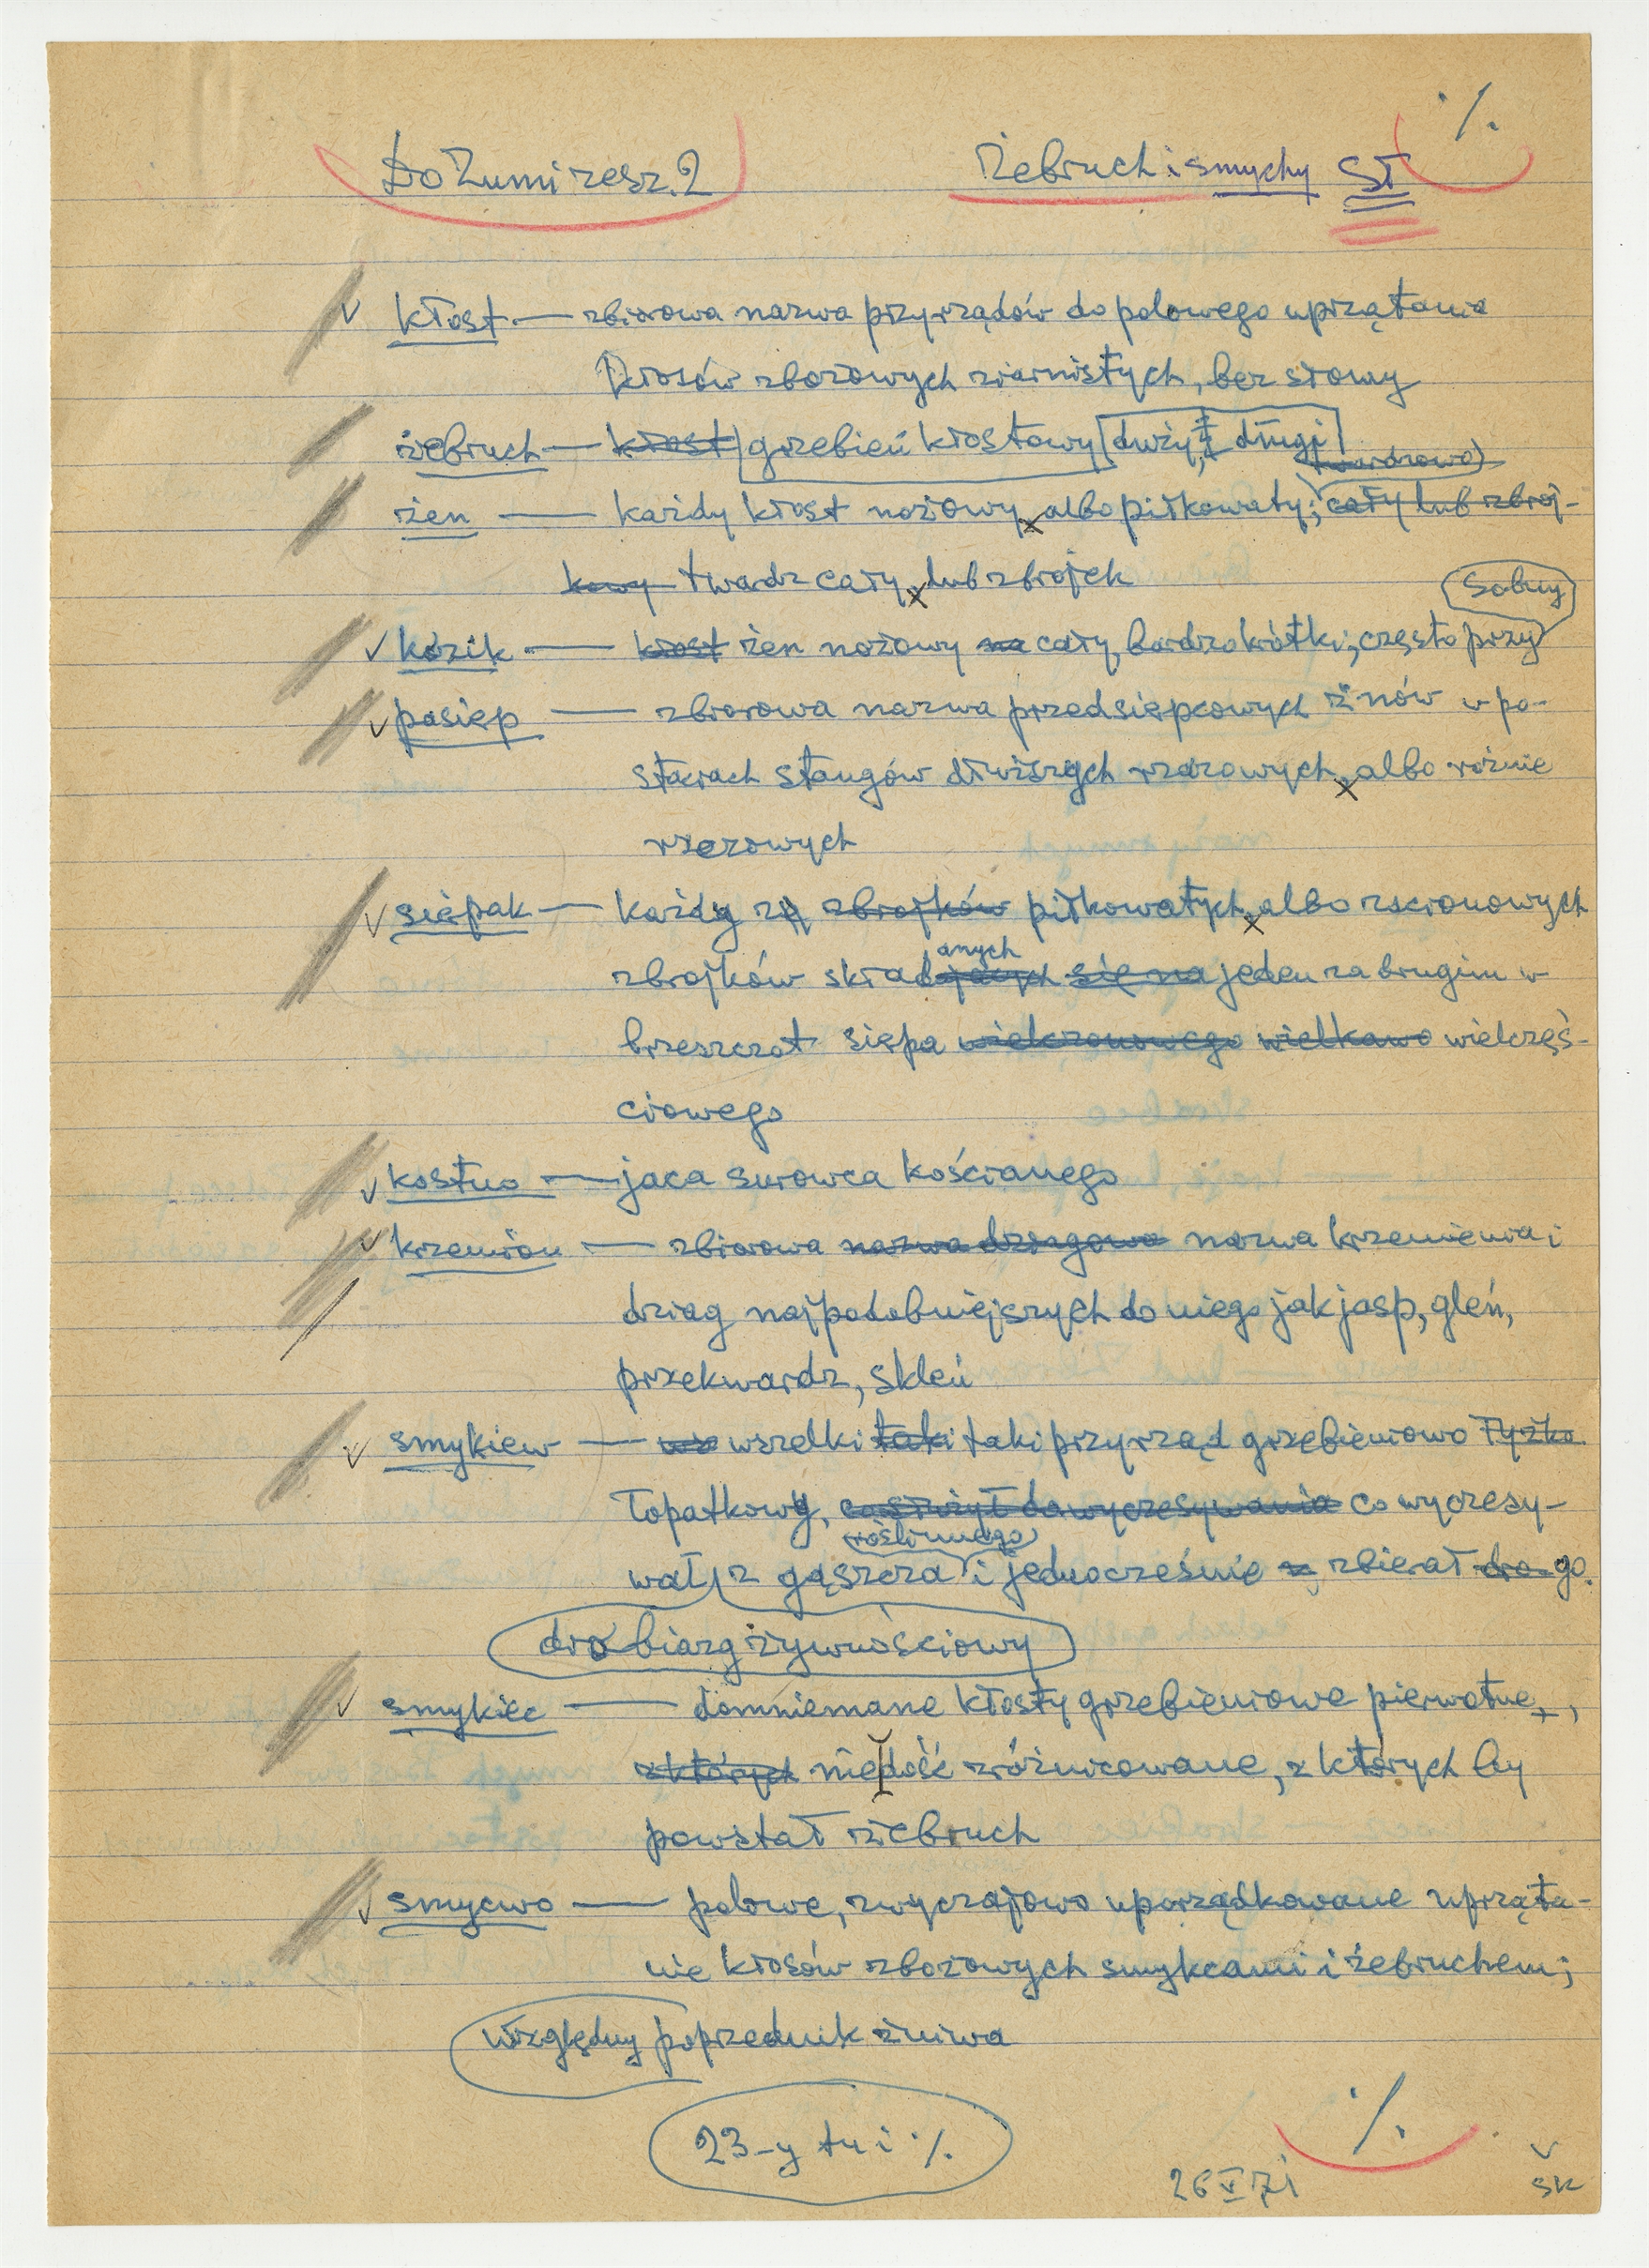 Do Żumi zesz. 2 Żebruch i smychy SŁ ·/.
kłost — zbiorowa nazwa przyrządów do polowego uprzątania
kłosów zbożowych ziarnistych, bez słomy
żebruch — kłost grzebień kłostowy duży, długi
twardzowo
żen — każdy kłost nożowy, albo piłkowaty; cały lub zbroj-
kowy twardz cały, lub zbrojek
Sobny
kózik — kłost żen nożowy na cały, bardzo krótki; często przy
pasiep — zbiorowa nazwa przedsiepcowych żnów w po-
staciach stangów dłuższych rzazowych, albo różnie
rzezowych
siepak — każdy z zbrojków piłkowatych, albo zscionowych
anych
zbrojków składających się na jeden za drugim w
brzeszczot siepa wielkawo wielczęś-
ciowego
kostwo — jaca surowca kościanego
krzemion — zbiorowa nazwa dziągowa nazwa krzemienia i
dziag najpodobniejszych do niego jak jasp, gleń,
przekwardz, skleń
smykiew — wsz wszelki taki taki przyrząd grzebieniowo łyżko
łopatkowy, co służył do wyczesywania co wyczesy-
roślinnego
wał z gąszcza i jednocześnie z zbierał dro go.
drobiazg żywnościowy
smykiec — domniemane kłosty grzebieniowe pierwotne,
z których niedość zróżnicowane, z których by
powstał żebruch
smycwo — polowe, zwyczajowo uporządkowane uprząta-
nie kłosów zbożowych smykcami i żebruchem;
względny poprzednik żniwa
23-y tu i ·/.
·/.
26 V 71 ŠK